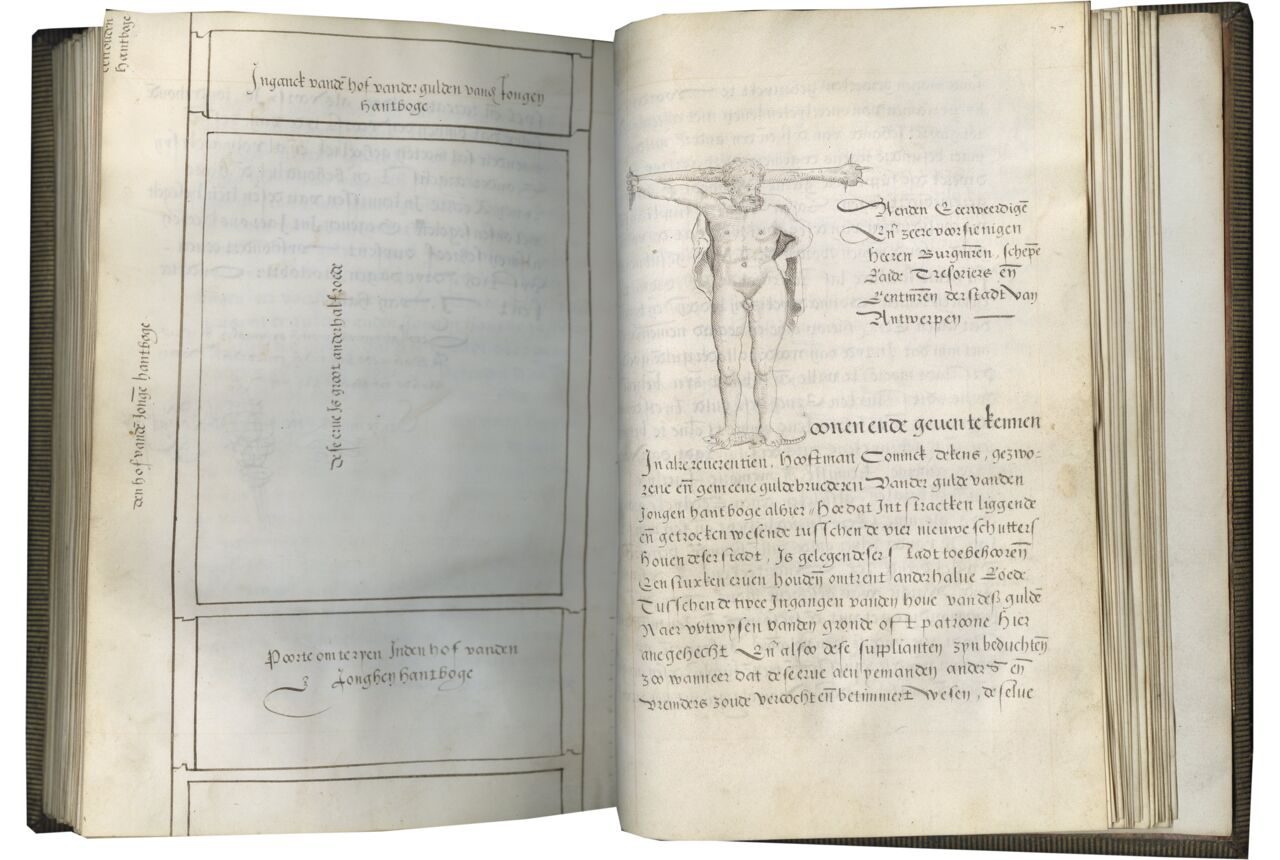 den ouden
hantboge
Inganck vandē hof vander gulden vandē Jongen
hantboge
dese erue Is groot anderhalf roede
den hof vandē Jongē hantboge
Poorte om te ryen Inden hof vanden
Jonghen hantboge
77
Aenden Eerweerdigē
Eñ zeere voorsienigen
heeren Burgmr̄en, schepē
Oude Tresoriers eñ
Rentmr̄en der stadt van
Antwerpen
oonen ende geuen te kennen
In alre reuerentien, hooftman Coninck dekens, gezwo-
rene eñ gemeene guldebruederen Vander gulde vanden
Jongen hantboge alhier // Hoe dat Int straetken liggende
eñ getrocken wesende tusschen de vier nieuwe schutters
houen deser stadt, Is gelegen deser stadt toebehooreñ
Een stuxken eruen houdeñ omtrent anderhalue Roede
Tusschen de twee Ingangen vanden houe van deß guldē
Naer vvtwysen vanden gronde oft patroone hier
ane gehecht Eñ alsoo dese supplianten zyn beduchteñ
zoo wanneer dat dese erue aen yemanden anders eñ
vremders zoude vercocht eñ betimmert wesen, de selue